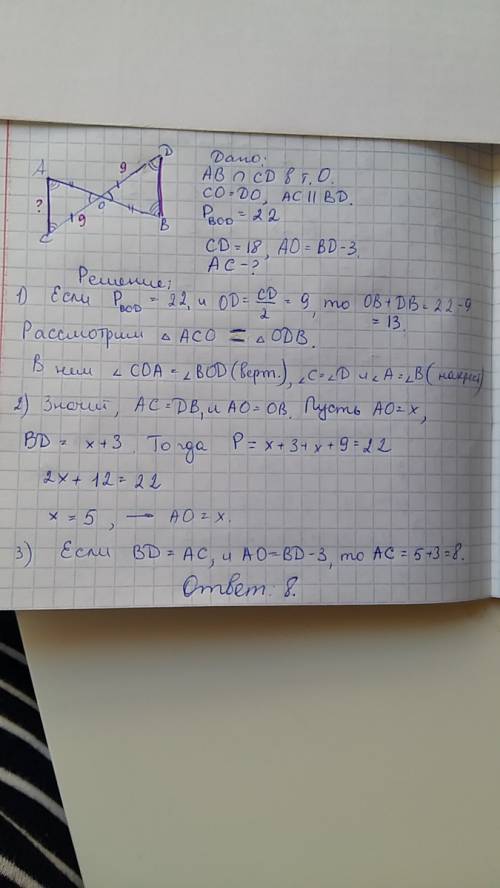 A
D
9
O
?
9
C
B
Дано:
AB ∩ CD в т. O.
CO=DO, AC || BD.
P_BOD = 22
CD = 18, AO = BD-3.
AC - ?
Решение:
1) Если P_BOD = 22, и OD = CD/2 = 9, то OB+DB = 22-9
= 13.
Рассмотрим △ ACO = △ ODB.
В них ∠COA = ∠BOD (верт.), ∠C=∠D и ∠A = ∠B (накрест)
2) Значит, AC = DB, и AO = OB. Пусть AO = x,
BD = x+3. Тогда P = x+3+x+9 = 22
2x + 12 = 22
x = 5, — AO = x.
3) Если BD = AC, и AO = BD-3, то AC = 5+3 = 8.
Ответ: 8.